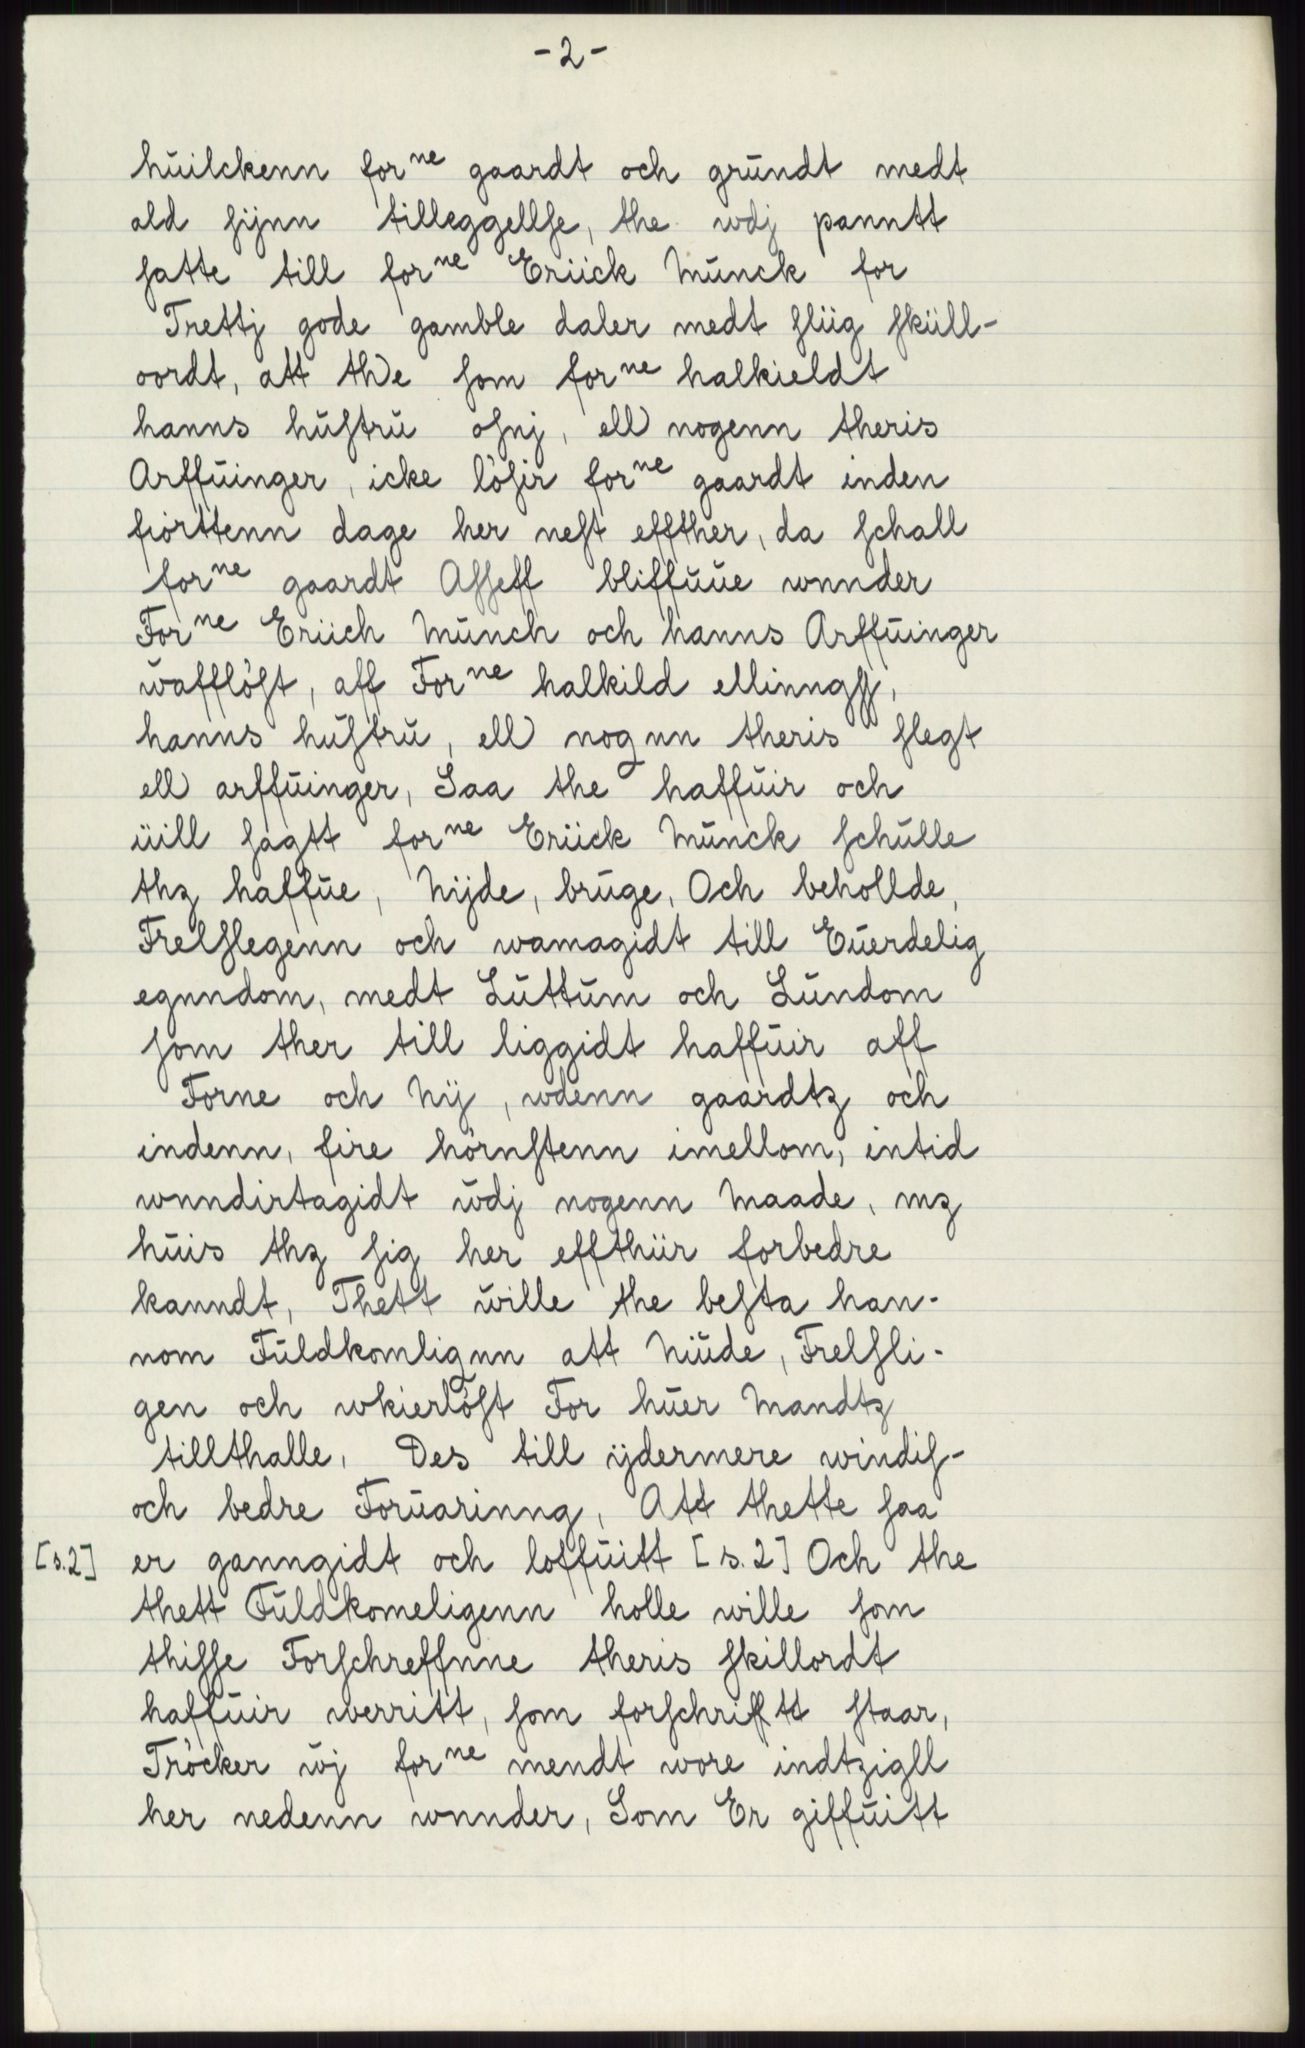 -2-
huilckenn forne gaardt och grundt medt
ald sijnn tilleggellse, the wdj panntt
satte till forne Eriick Munck for
Trettj gode gamble daler medt sliig skiill-
oordt, att the som forne halkieldt
hanns hustru osnj, ell nogenn theris
Arffuinger, icke lösir forne gaardt inden
fiorttenn dage her nest effther, da schall
forne gaardt Asseff bliffuue wnnder
Forne Eriich Munch och hanns Arffuinger
wafflöst, aff Forne halkild ellinngss,
hanns hustru, ell nognn theris slegt
ell arffuinger, Saa the haffuir och
üill sagtt forne Eriick Munck schulle
thz haffue, Nijde, bruge, Och behollde,
Frelslegenn och wamagidt till Euerdelig
egnndom, medt Luttum och Lundom
som ther till liggidt haffuir aff
Forne och Nij, wdenn gaardtz och
indenn, fire hörnstenn imellom, intid
wnndirtagidt wdj nogenn Maade, mz
huis thz sig her effthiir forbedre
kanndt, Thett wille the besta han-
nom Fuldkomlignn att Niude, Frelsli-
gen och wkierlöst For huer Mandtz
tillthalle. Des till ijdermere windis-
och bedre Foruarinng, Att thette saa
[s.2] er ganngidt och loffuitt [s.2] Och the
thett Fuldkomeligenn holle wille som
thisse Forschreffnne theris skillordt
haffuir werritt, som forschrifftt staar,
Tröcker wj forne mendt wore indtzigll
her nedenn wnnder, Som Er giffuitt